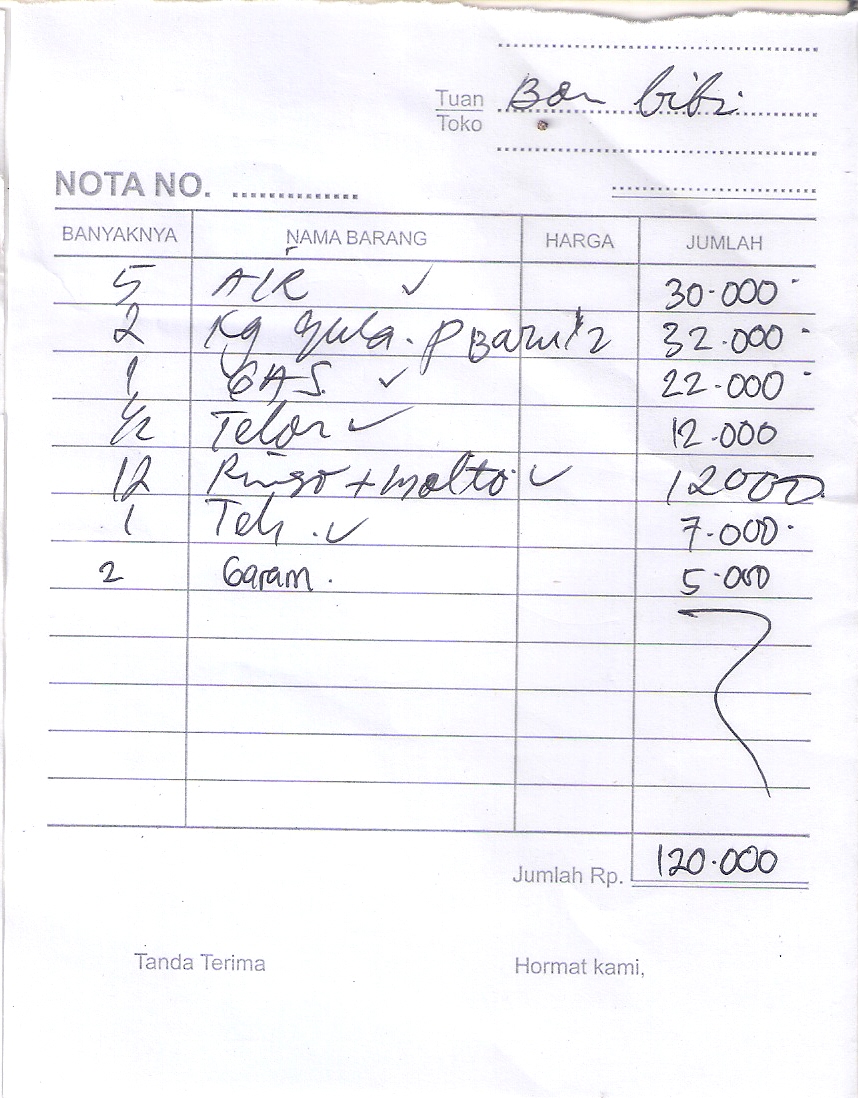 Tuan Bon bibi
Toko
NOTA NO.
BANYAKNYA NAMA BARANG HARGA JUMLAH
5 AIR ✓ 30.000
2 Kg gula. P Baru 2 32.000
1 GAS ✓ 22.000
1/2 Telor ✓ 12.000
12 Rinso + molto ✓ 12000
1 Teh ✓ 7.000
2 Garam. 5.000
Jumlah Rp. 120.000
Tanda Terima Hormat kami,